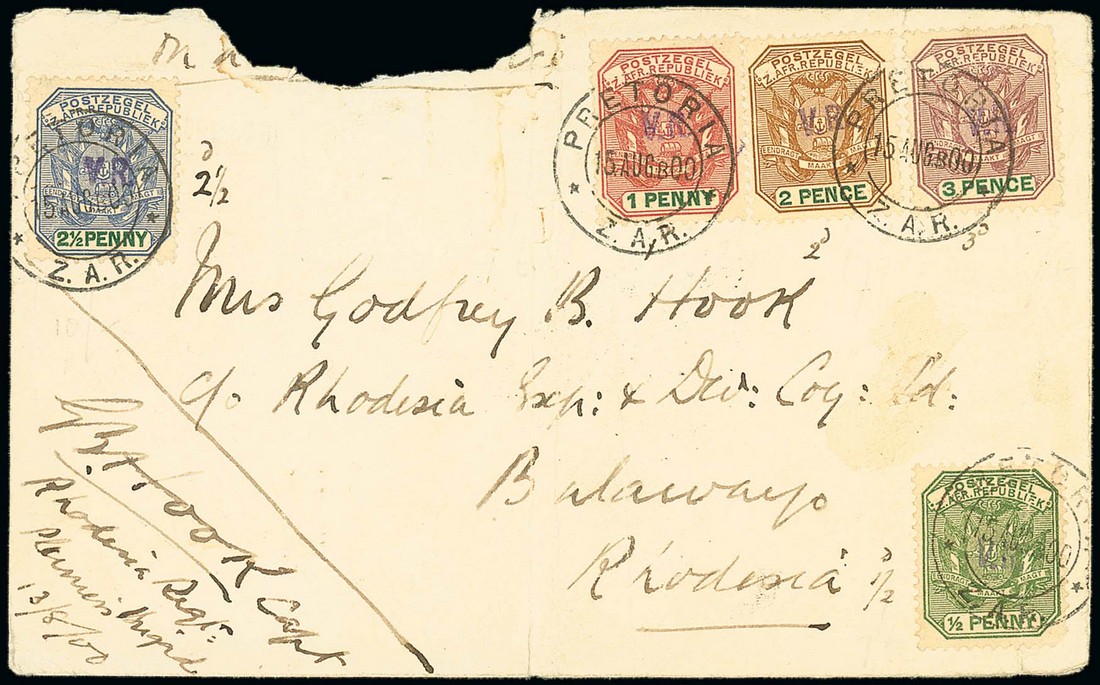 POSTZEGEL
Z. AFR. REPUBLIEK
V.R.
EENDRAGT MAAKT MAGT
2½ PENNY
PRETORIA
15 AUG 00
Z.A.R.
2½d
POSTZEGEL
Z. AFR. REPUBLIEK
V.R.
1 PENNY
PRETORIA
15 AUG B 00
Z.A.R.
POSTZEGEL
Z. AFR. REPUBLIEK
V.R.
EENDRAGT MAAKT MAGT
2 PENCE
2d
POSTZEGEL
Z. AFR. REPUBLIEK
V.
3 PENCE
PRETORIA
15 AUG B 00
Z.A.R.
3d
Mrs Godfrey B. Hook
c/o Rhodesia Exp: & Dev: Coy: Ld:
Bulawayo
Rhodesia
½d
G B Hook Capt
Rhodesia Regt:
Plumer's
13/8/00
POSTZEGEL
Z. AFR. REPUBLIEK
V.R.
EENDRAGT MAAKT MAGT
½ PENNY
15 AUG 00
Z.A.R.